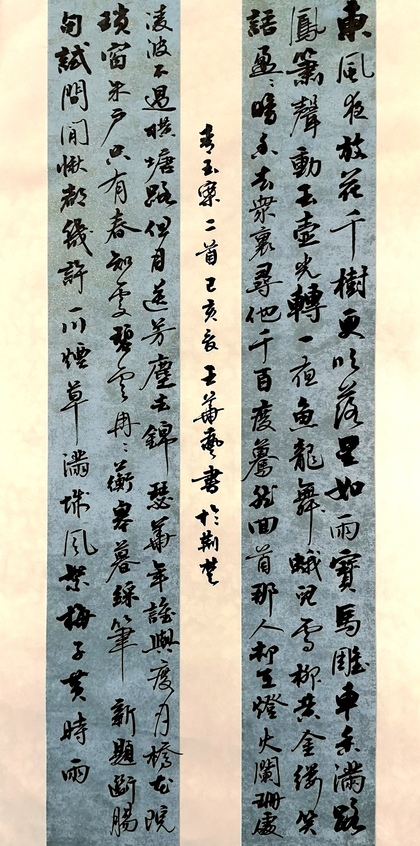 東風夜放花千樹更吹落星如雨寶馬雕車香滿路
鳳簫聲動玉壺光轉一夜魚龍舞蛾兒雪柳黃金縷笑
語盈〻暗香去衆裏尋他千百度驀然回首那人却在燈火闌珊處
青玉案二首己亥夏王華藝書於荆楚
凌波不過橫塘路但目送芳塵去錦瑟華年誰與度月橋花院
瑣窗朱戶只有春知處碧雲冉〻蘅皋暮綵筆新題斷腸
句試問閒愁都幾許一川煙草滿城風絮梅子黃時雨